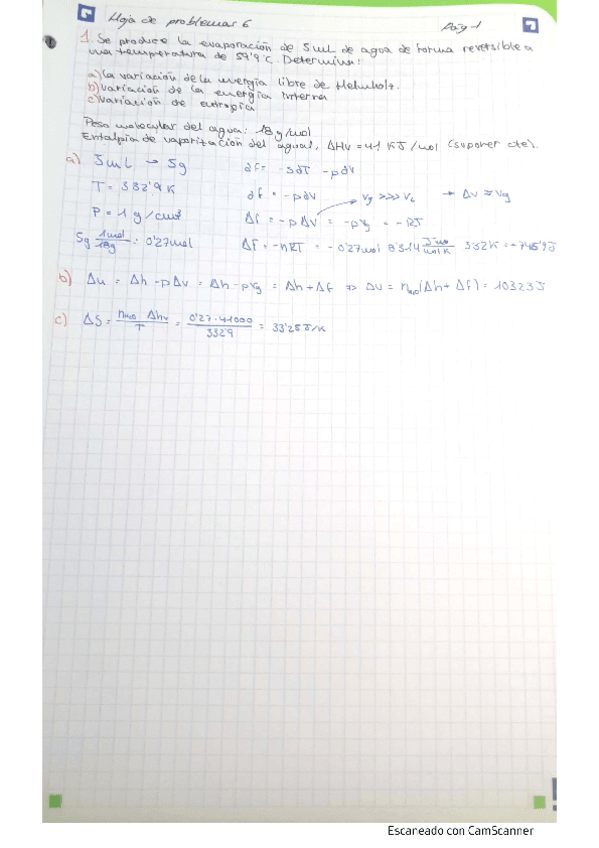 Hoja de problemas 6 Pág-1
1. Se produce la evaporación de 5 mL de agua de forma reversible a
una temperatura de 59'9°C. Determina:
a) la variación de la energía libre de Helmholt.
b) variación de la energía interna
c) variación de entropía
Peso molecular del agua: 18 g/mol
Entalpía de vaporización del agua, ΔHv = 41 KJ/mol (suponer cte).
a) 5mL → 5g ∂f = -s∂T - p∂V
T = 332'9 K ∂f = -p∂V → Vg >>> VL → ΔV ≈ Vg
P = 1 g/cm³ Δf = -pΔV = -pVg = -RT
5g 1mol/18g = 0'27mol ΔF = -nRT = -0'27mol 8'314 332K = -745'9J
b) Δu = Δh - pΔv = Δh - pVg = Δh + Δf ⇒ ΔU = nH2O(Δh + Δf) = 10323J
c) ΔS = nH2O Δhv / T = 0'27·41000 / 332'9 = 33'25 J/K
Escaneado con CamScanner